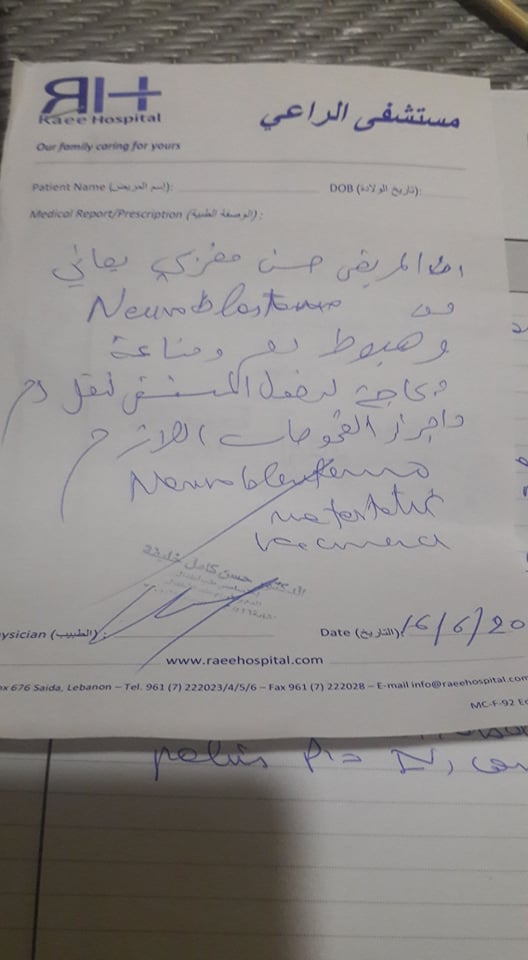 RH
Raee Hospital
مستشفى الراعي
Our family caring for yours
Patient Name (اسم المريض):
DOB (تاريخ الولادة):
Medical Report/Prescription (الوصفة الطبية):
المريض حسن يعاني
من Neuroblastoma
و هبوط دم و مناعة
بحاجة لدخول المستشفى لنقل دم
واجراء الفحوصات اللازمة
Neuroblastoma
metastatic
الدكتور حسن كامل خليفة
ysician (الطبيب):
Date (التاريخ): 16/6/20
www.raeehospital.com
ox 676 Saida, Lebanon – Tel. 961 (7) 222023/4/5/6 – Fax 961 (7) 222028 – E-mail info@raeehospital.com
MC-F-92 Ed
pelvis